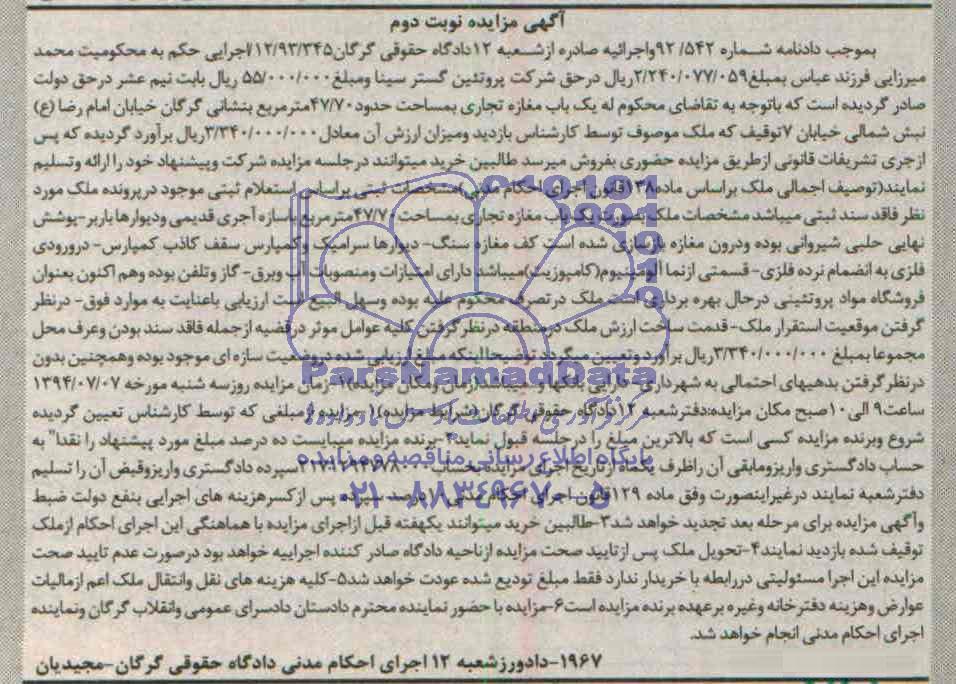 آگهی مزایده نوبت دوم
بموجب دادنامه شماره ۹۲/۵۴۲ واجرائیه صادره ازشعبه ۱۲دادگاه حقوقی گرگان۱۲/۹۳/۳۴۵اجرایی حکم به محکومیت محمد
میرزایی فرزند عباس بمبلغ۲/۲۴۰/۰۷۷/۰۵۹ریال درحق شرکت پروتئین گستر سینا ومبلغ۵۵/۰۰۰/۰۰۰ ریال بابت نیم عشر درحق دولت
صادر گردیده است که باتوجه به تقاضای محکوم له یک باب مغازه تجاری بمساحت حدود۴۷/۷۰مترمربع بنشانی گرگان خیابان امام رضا (ع)
نبش شمالی خیابان ۷توقیف که ملک موصوف توسط کارشناس بازدید ومیزان ارزش آن معادل۳/۳۴۰/۰۰۰/۰۰۰ریال برآورد گردیده که پس
ازجری تشریفات قانونی ازطریق مزایده حضوری بفروش میرسد طالبین خرید میتوانند درجلسه مزایده شرکت وپیشنهاد خود را ارائه وتسلیم
نمایند(توصیف اجمالی ملک براساس ماده۱۳۸قانون اجرای احکام مدنی)مشخصات ثبتی براساس استعلام ثبتی موجود درپرونده ملک مورد
نظر فاقد سند ثبتی میباشد مشخصات ملک بصورت یک باب مغازه تجاری بمساحت ۴۷/۷۰مترمربع باسازه آجری قدیمی ودیوارها باربر-پوشش
نهایی حلبی شیروانی بوده ودرون مغازه بازسازی شده است کف مغازه سنگ- دیوارها سرامیک وکمپارس سقف کاذب کمپارس- درورودی
فلزی به انضمام نرده فلزی- قسمتی ازنما آلومینیوم(کامپوزیت)میباشد دارای امتیازات ومنصوبات آب وبرق- گاز وتلفن بوده وهم اکنون بعنوان
فروشگاه مواد پروتئینی درحال بهره برداری است ملک درتصرف محکوم علیه بوده وسهل البیع است ارزیابی باعنایت به موارد فوق- درنظر
گرفتن موقعیت استقرار ملک- قدمت ساخت ارزش ملک درمنطقه درنظرگرفتن کلیه عوامل موثر درقضیه ازجمله فاقد سند بودن وعرف محل
مجموعا بمبلغ ۳/۳۴۰/۰۰۰/۰۰۰ریال برآورد وتعیین میگردد توضیحا اینکه مبلغ ارزیابی شده دروضعیت سازه ای موجود بوده وهمچنین بدون
درنظرگرفتن بدهیهای احتمالی به شهرداری- دارایی بانکها و... میباشد(زمان ومکان مزایده)۱-زمان مزایده روزسه شنبه مورخه ۱۳۹۴/۰۷/۰۷
ساعت۹ الی۱۰صبح مکان مزایده:دفترشعبه ۱۲دادگاه حقوقی گرگان(شرایط مزایده)۱-مزایده ازمبلغی که توسط کارشناس تعیین گردیده
شروع وبرنده مزایده کسی است که بالاترین مبلغ را درجلسه قبول نماید۲-برنده مزایده میبایست ده درصد مبلغ مورد پیشنهاد را نقدا" به
حساب دادگستری واریزومابقی آن راظرف یکماه ازتاریخ اجرای مزایده بحساب سپرده دادگستری واریزوقبض آن را تسلیم
دفترشعبه نمایند درغیراینصورت وفق ماده ۱۲۹قانون اجرای احکام مدنی ۱۰درصد سپرده پس ازکسرهزینه های اجرایی بنفع دولت ضبط
وآگهی مزایده برای مرحله بعد تجدید خواهد شد۳-طالبین خرید میتوانند یکهفته قبل ازاجرای مزایده با هماهنگی این اجرای احکام ازملک
توقیف شده بازدید نمایند۴-تحویل ملک پس ازتایید صحت مزایده ازناحیه دادگاه صادر کننده اجراییه خواهد بود درصورت عدم تایید صحت
مزایده این اجرا مسئولیتی دررابطه با خریدار ندارد فقط مبلغ تودیع شده عودت خواهد شد۵-کلیه هزینه های نقل وانتقال ملک اعم ازمالیات
عوارض وهزینه دفترخانه وغیره برعهده برنده مزایده است۶-مزایده با حضور نماینده محترم دادستان دادسرای عمومی وانقلاب گرگان ونماینده
اجرای احکام مدنی انجام خواهد شد.
۱۹۶۷-دادورزشعبه ۱۲ اجرای احکام مدنی دادگاه حقوقی گرگان-مجیدیان
ParsNamadData
پایگاه اطلاع رسانی مناقصه و مزایده
۰۲۱-۸۸۳۴۹۶۷۰-۵